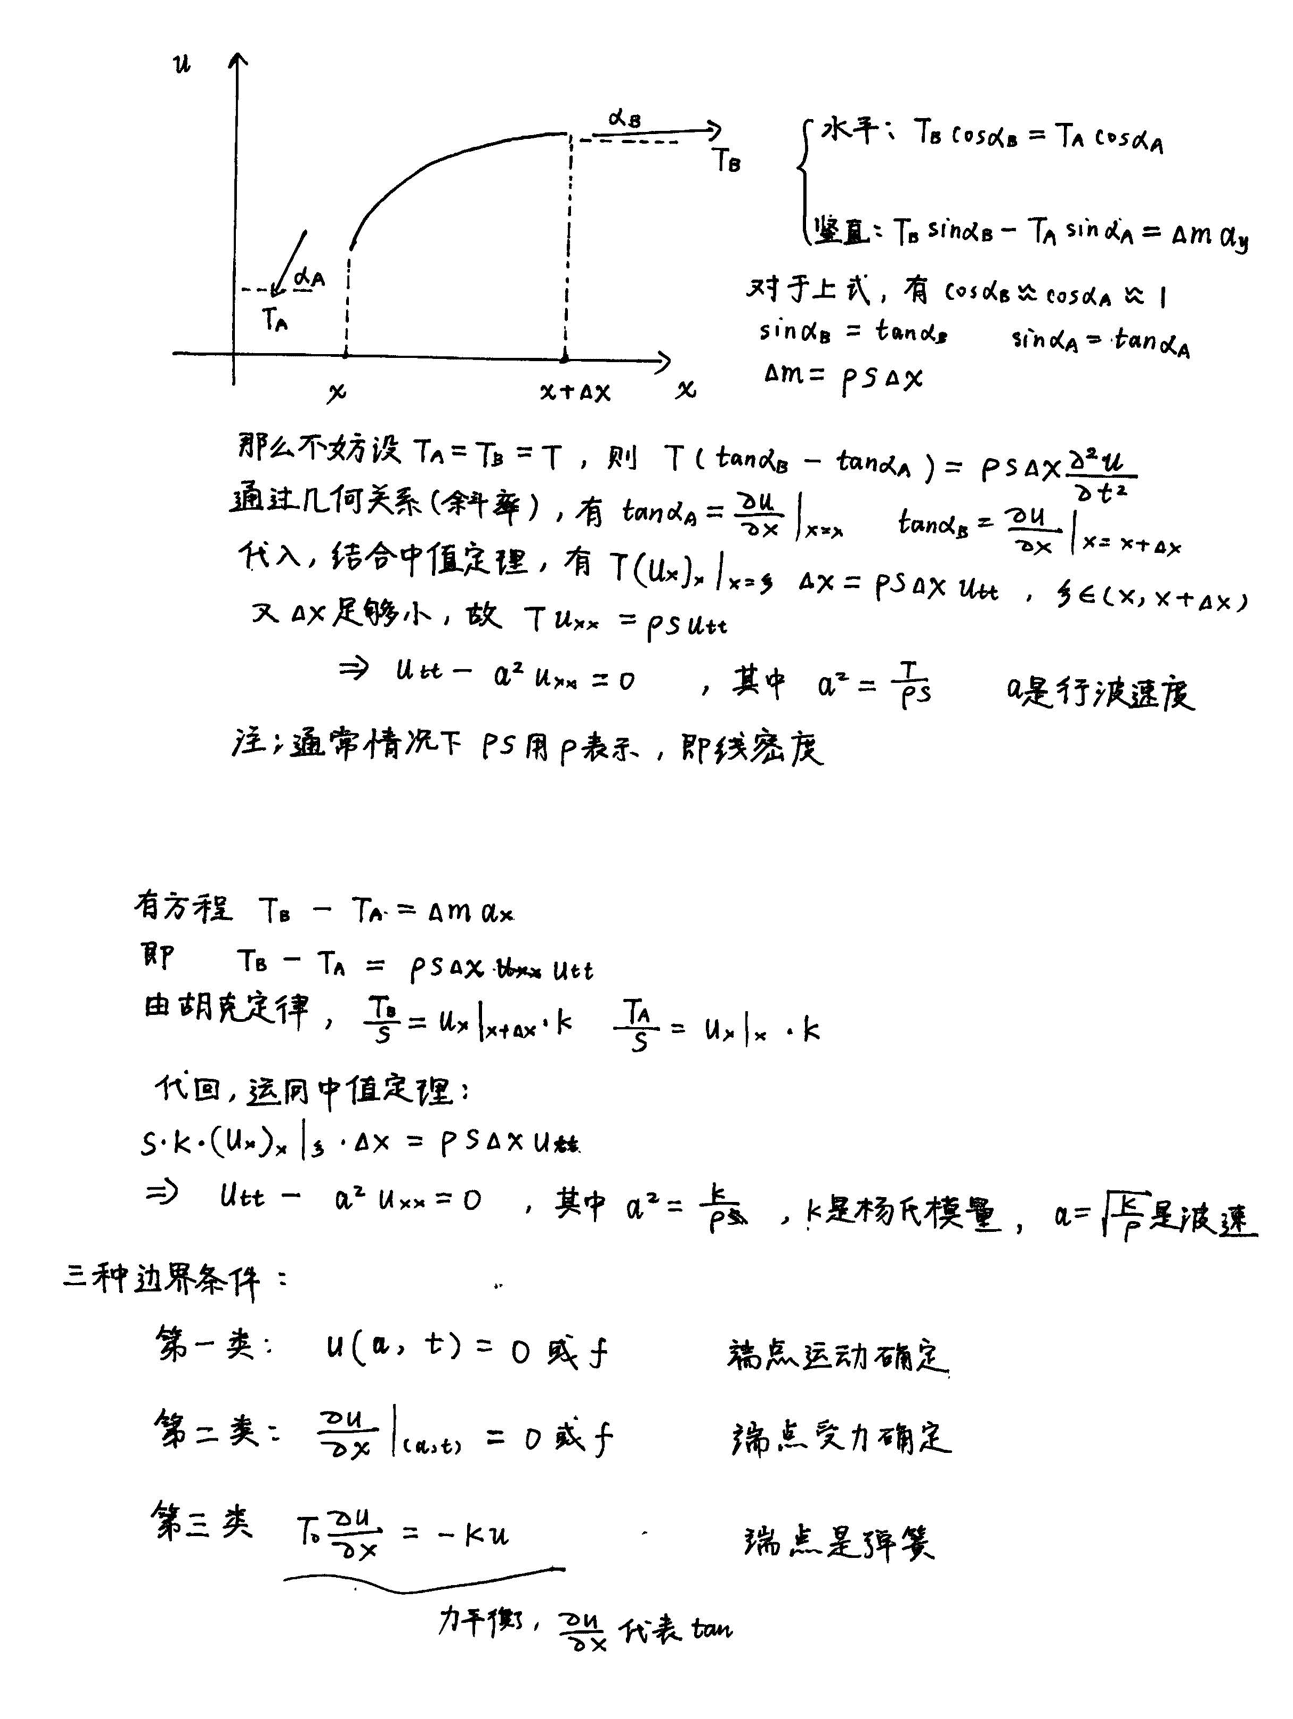 u
α_B
T_B
α_A
T_A
x
x+Δx
x
水平: T_B cosα_B = T_A cosα_A
竖直: T_B sinα_B - T_A sinα_A = Δm a_y
对于上式, 有 cosα_B ≈ cosα_A ≈ 1
sinα_B = tanα_B sinα_A = tanα_A
Δm = ρSΔx
那么不妨设 T_A = T_B = T, 则 T(tanα_B - tanα_A) = ρSΔx ∂²u/∂t²
通过几何关系(斜率), 有 tanα_A = ∂u/∂x |_{x=x} tanα_B = ∂u/∂x |_{x=x+Δx}
代入, 结合中值定理, 有 T(u_x)_x |_{x=ξ} Δx = ρSΔx u_tt, ξ∈(x, x+Δx)
又 Δx 足够小, 故 T u_xx = ρS u_tt
⇒ u_tt - a² u_xx = 0 , 其中 a² = T/ρS a是行波速度
注: 通常情况下 ρS 用 ρ 表示, 即线密度
有方程 T_B - T_A = Δm a_x
即 T_B - T_A = ρSΔx u_tt
由胡克定律, T_B/S = u_x|_{x+Δx}·k T_A/S = u_x|_x ·k
代回, 运用中值定理:
S·k·(u_x)_x |_ξ ·Δx = ρSΔx u_tt
⇒ u_tt - a² u_xx = 0 , 其中 a² = k/ρ , k是杨氏模量, a=√(k/ρ) 是波速
三种边界条件:
第一类: u(a, t) = 0 或 f 端点运动确定
第二类: ∂u/∂x |_{(a,t)} = 0 或 f 端点受力确定
第三类 T₀ ∂u/∂x = -ku 端点是弹簧
力平衡, ∂u/∂x 代表 tan